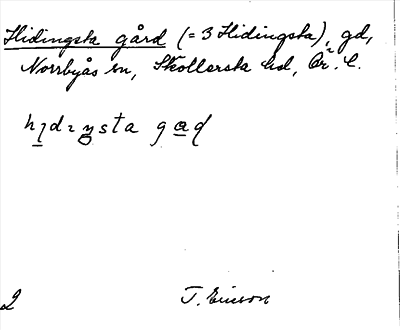 Hidingsta gård (= 3 Hidingsta), gd,
Norrbyås sn, Skollersta hd, Ör. l.
hɪdɪŋsta gɑɖ
2 T. Ericson